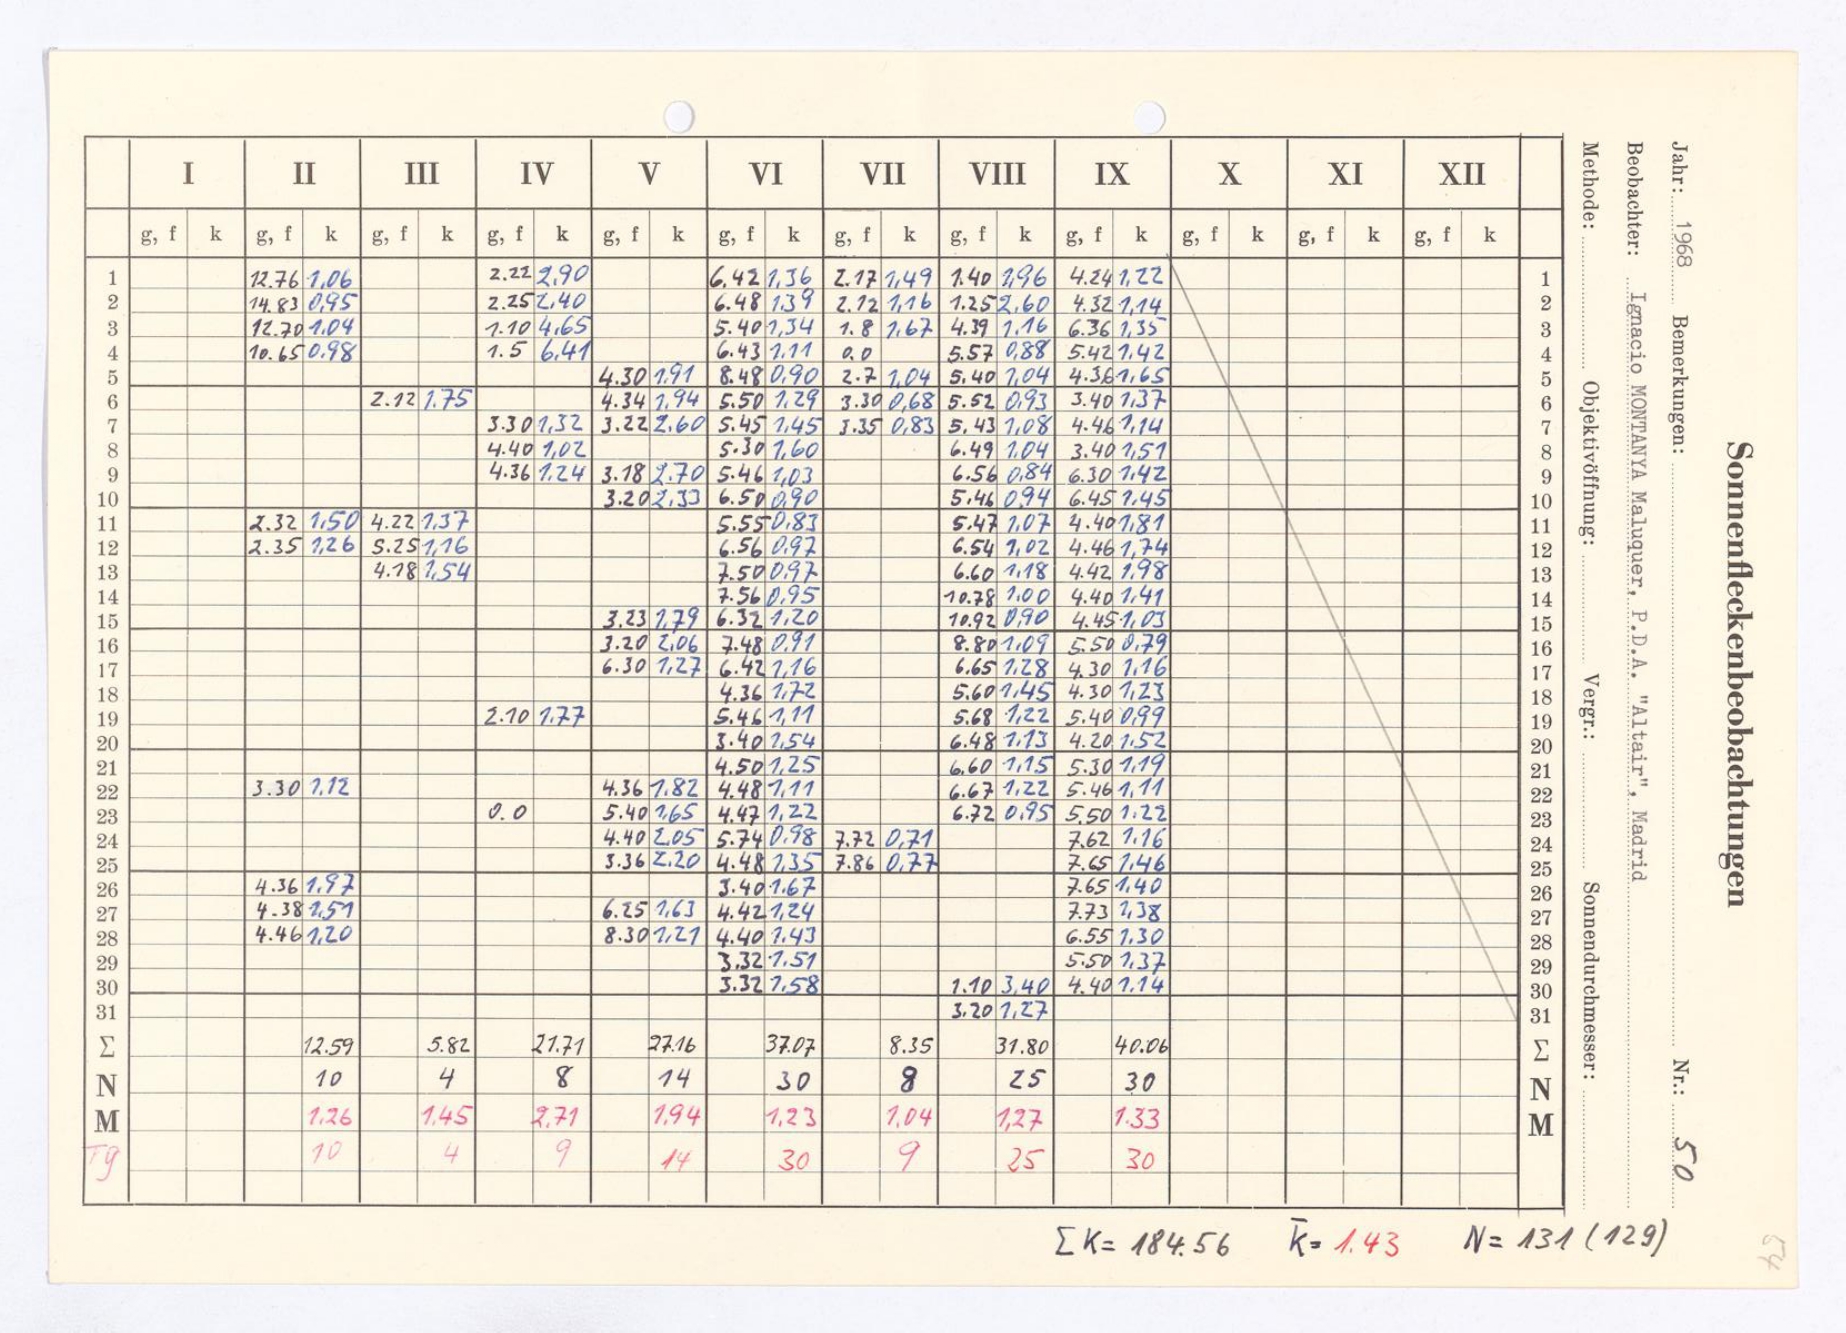 Sonnenfleckenbeobachtungen
Jahr: 1968 Bemerkungen: Nr.: 50
Beobachter: Ignacio MONTANYA Maluquer, P.D.A. "Altair", Madrid
Methode: Objektivöffnung: Vergr.: Sonnendurchmesser:
I II III IV V VI VII VIII IX X XI XII
g, f k g, f k g, f k g, f k g, f k g, f k g, f k g, f k g, f k g, f k g, f k g, f k
1 12.76 1,06 2.22 2,90 6.42 1,36 2.17 1,49 1.40 1,96 4.24 1,22 1
2 14.83 0,95 2.25 2,40 6.48 1,39 2.12 1,16 1.25 2,60 4.32 1,14 2
3 12.70 1,04 1.10 4,65 5.40 1,34 1.8 1,67 4.39 1.16 6.36 1,35 3
4 10.65 0,98 1.5 6,41 6.43 1,11 0.0 5.57 0,88 5.42 1,42 4
5 4.30 1,91 8.48 0,90 2.7 1,04 5.40 1,04 4.36 1,65 5
6 2.12 1.75 4.34 1,94 5.50 1,29 3.30 0,68 5.52 0,93 3.40 1,37 6
7 3.30 1,32 3.22 2,60 5.45 1,45 3.35 0,83 5.43 1,08 4.46 1,14 7
8 4.40 1,02 5.30 1,60 6.49 1,04 3.40 1,51 8
9 4.36 1,24 3.18 2,70 5.46 1,03 6.56 0,84 6.30 1,42 9
10 3.20 2,33 6.50 0,90 5.46 0,94 6.45 1,45 10
11 2.32 1,50 4.22 1,37 5.55 0,83 5.47 1,07 4.40 1,81 11
12 2.35 1,26 5.25 1,16 6.56 0,97 6.54 1,02 4.46 1,74 12
13 4.18 1,54 7.50 0,97 6.60 1,18 4.42 1,98 13
14 7.56 0,95 10.78 1,00 4.40 1,41 14
15 3.23 1,79 6.32 1,20 10.92 0,90 4.45 1,03 15
16 3.20 2,06 7.48 0,91 8.80 1,09 5.50 0,79 16
17 6.30 1,27 6.42 1,16 6.65 1,28 4.30 1,16 17
18 4.36 1,72 5.60 1,45 4.30 1,23 18
19 2.10 1,77 5.46 1,11 5.68 1,22 5.40 0,99 19
20 3.40 1,54 6.48 1,13 4.20 1,52 20
21 4.50 1,25 6.60 1,15 5.30 1,19 21
22 3.30 1,12 4.36 1,82 4.48 1,11 6.67 1,22 5.46 1,11 22
23 0.0 5.40 1,65 4.47 1,22 6.72 0,95 5.50 1,22 23
24 4.40 2,05 5.74 0,98 7.72 0,71 7.62 1.16 24
25 3.36 2,20 4.48 1,35 7.86 0,77 7.65 1,46 25
26 4.36 1,97 3.40 1,67 7.65 1,40 26
27 4.38 1,51 6.25 1,63 4.42 1,24 7.73 1,38 27
28 4.46 1,20 8.30 1,21 4.40 1,43 6.55 1,30 28
29 3.32 1,51 5.50 1,37 29
30 3.32 1,58 1.10 3,40 4.40 1.14 30
31 3.20 1,27 31
Σ 12.59 5.82 21.71 27.16 37.07 8.35 31.80 40.06 Σ
N 10 4 8 14 30 8 25 30 N
M 1,26 1.45 2,71 1,94 1,23 1,04 1,27 1.33 M
Tg 10 4 9 14 30 9 25 30
ΣK = 184.56 k̄ = 1.43 N = 131 (129)
54